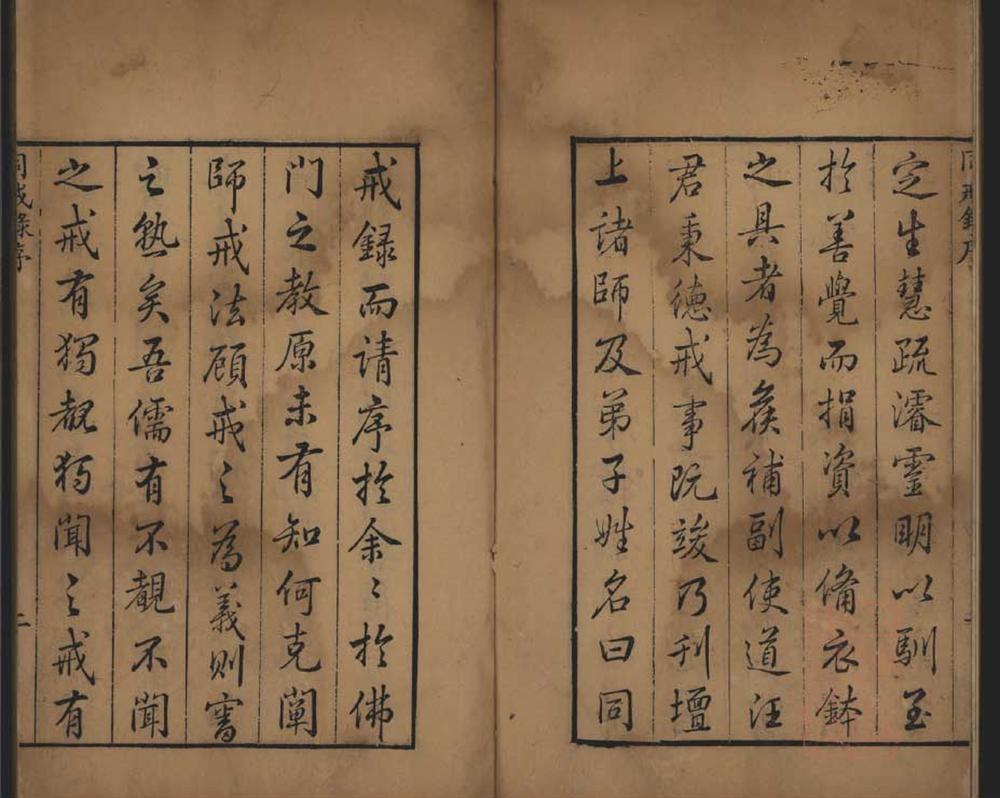 定生慧疏濬靈明以馴至
於善覺而捐資以備衣鉢
之具者為矦補副使道汪
君秉德戒事既竣乃刊壇
上諸師及弟子姓名曰同
戒録而請序於余〻於佛
門之教原未有知何克闡
師戒法顧戒之為義則審
之熟矣吾儒有不覩不聞
之戒有獨覩獨聞之戒有
同戒錄序
二